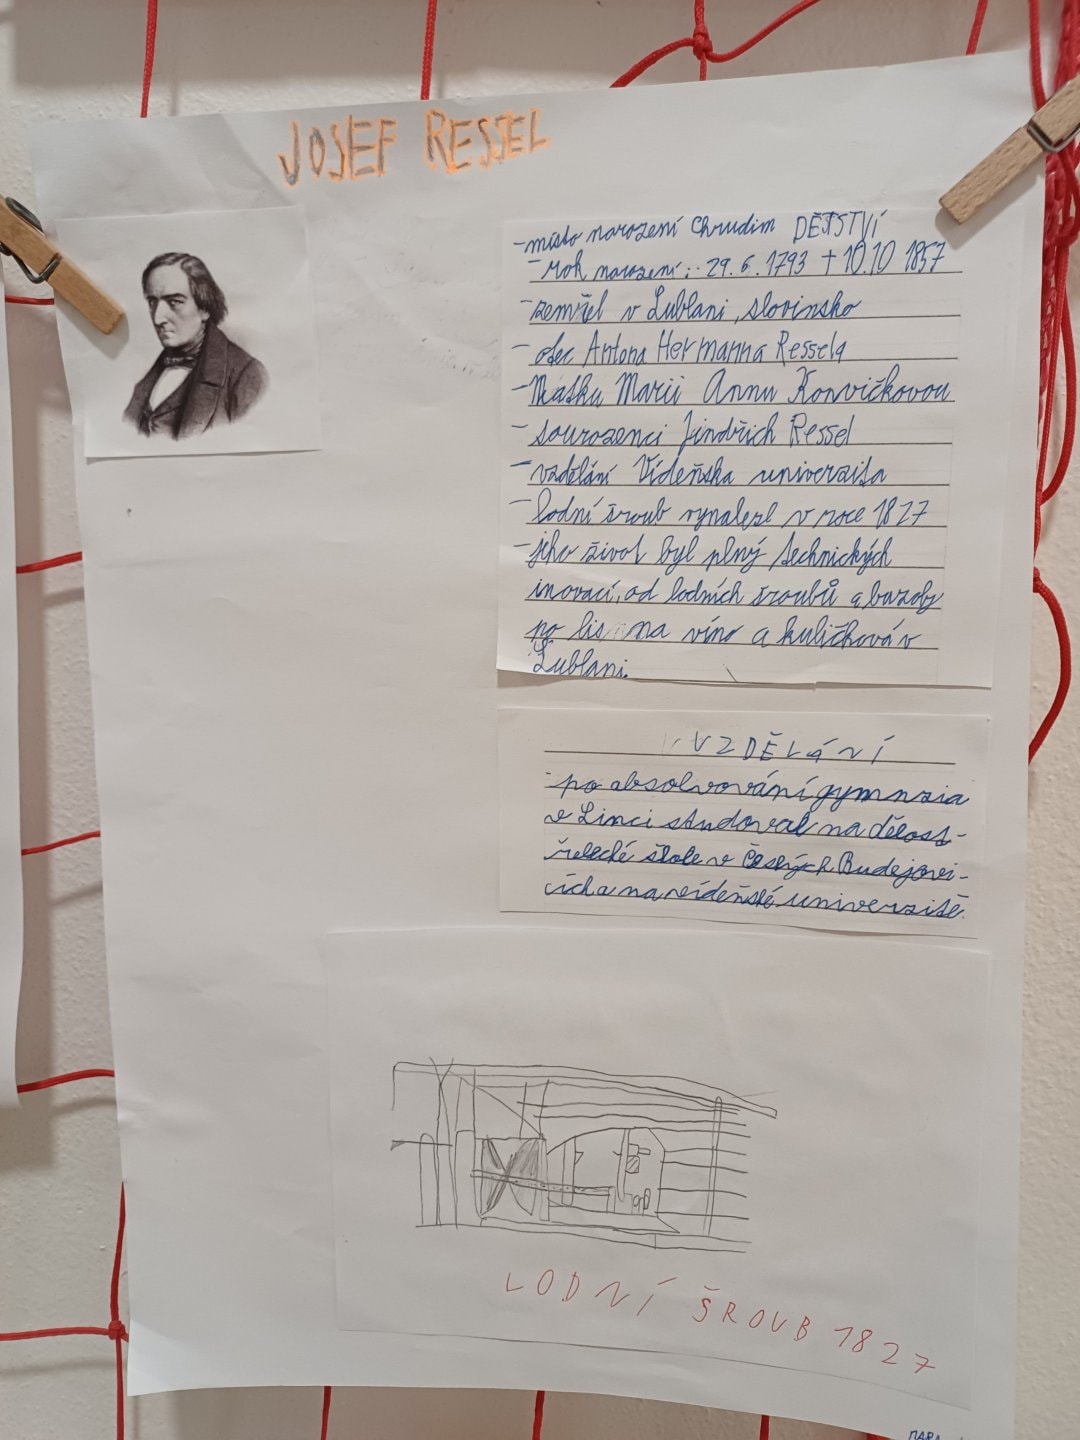 JOSEF RESSEL
-místo narození Chrudim DĚTSTVÍ
-rok narození: 29.6.1793 + 10.10 1857
-zemřel v Lublani, slovinsko
-otec Antona Hermanna Ressela
-Matku Marii Annu Konvičkovou
-sourozenci Jindřich Ressel
-vzdělání Vídeňska univerzita
-lodní šroub vynalezl v roce 1827
-jeho život byl plný technických
inovací, od lodních šroubů a bazoby
po lis na víno a kuličková v
Lublani.
VZDĚLÁNÍ
-po absolvování gymnzia
v Linci studoval na dělost-
řelecké škole v Českých Budejovi-
cích a na vídeňské univerzitě.
LODNÍ ŠROUB 1827